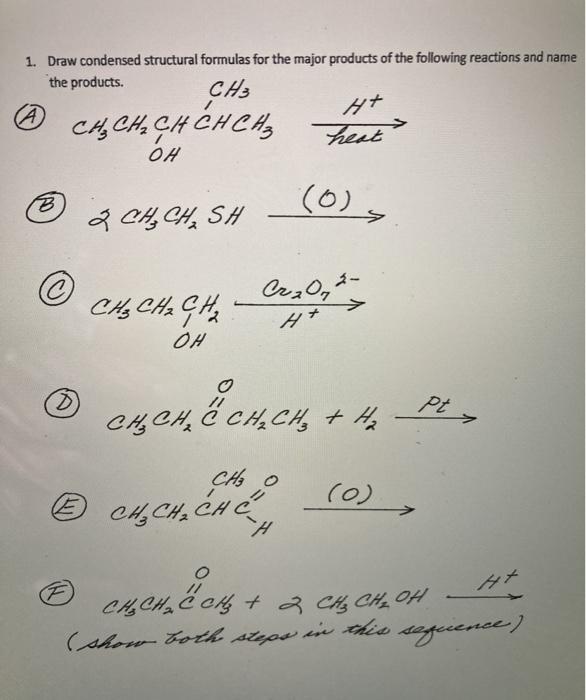 1. Draw condensed structural formulas for the major products of the following reactions and name
the products.
CH₃
(A) CH₃CH₂CHCHCH₃ H⁺ heat
OH
(B) 2 CH₃CH₂SH (O)
(C) CH₃CH₂CH₂ Cr₂O₇²⁻ H⁺
OH
O
(D) CH₃CH₂CCH₂CH₃ + H₂ Pt
CH₃ O
(E) CH₃CH₂CHC-H (O)
O
(F) CH₃CH₂CCH₃ + 2 CH₃CH₂OH H⁺
(show both steps in this sequence)